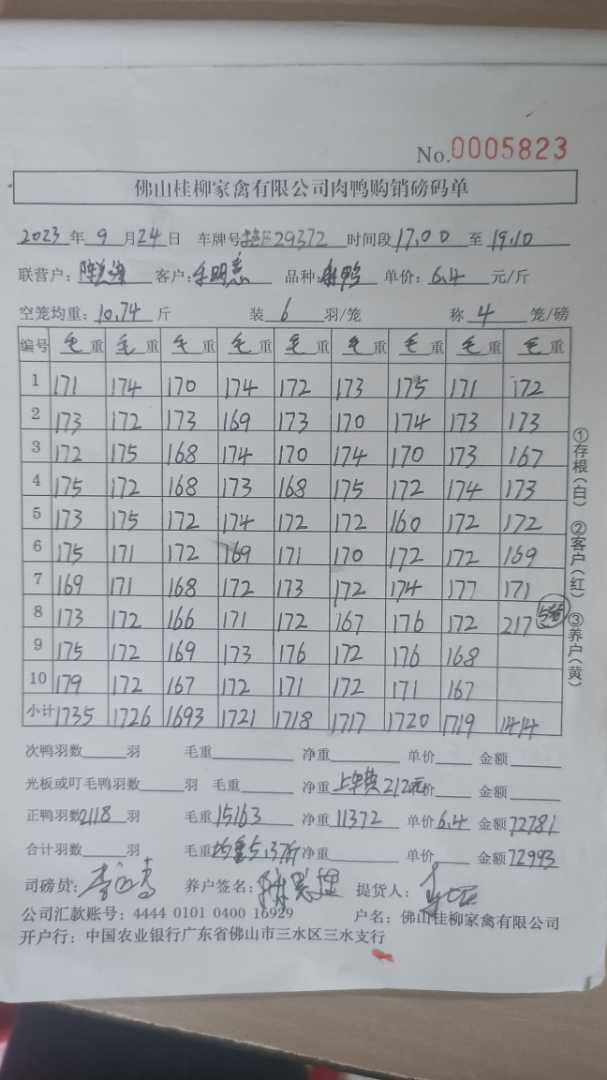 No.0005823
佛山桂柳家禽有限公司肉鸭购销磅码单
2023年9月24日 车牌号29372 时间段17.00至19.10
联营户： 客户： 品种： 单价：6.4元/斤
空笼均重：10.74斤 装6羽/笼 称4笼/磅
编号 毛重 毛重 毛重 毛重 毛重 毛重 毛重 毛重 毛重
1 171 174 170 174 172 173 175 171 172
2 173 172 173 169 173 170 174 173 173
3 172 175 168 174 170 174 170 173 167
4 175 172 168 173 168 175 172 174 173
5 173 175 172 174 172 172 160 172 172
6 175 171 172 169 171 170 172 172 169
7 169 171 168 172 173 172 174 177 171
8 173 172 166 171 172 167 176 172 217
9 175 172 169 173 176 172 176 168
10 179 172 167 172 171 172 171 167
小计 1735 1726 1693 1721 1718 1717 1720 1719 1414
次鸭羽数 羽 毛重 净重 单价 金额
光板或叮毛鸭羽数 羽 毛重 净重上车费212元价 金额
正鸭羽数2118羽 毛重15163 净重11372 单价6.4 金额72781
合计羽数 羽 毛重均重5.37斤净重 单价 金额72993
司磅员： 养户签名： 提货人：
公司汇款账号：4444 0101 0400 16929 户名：佛山桂柳家禽有限公司
开户行：中国农业银行广东省佛山市三水区三水支行
①存根（白） ②客户（红） ③养户（黄）